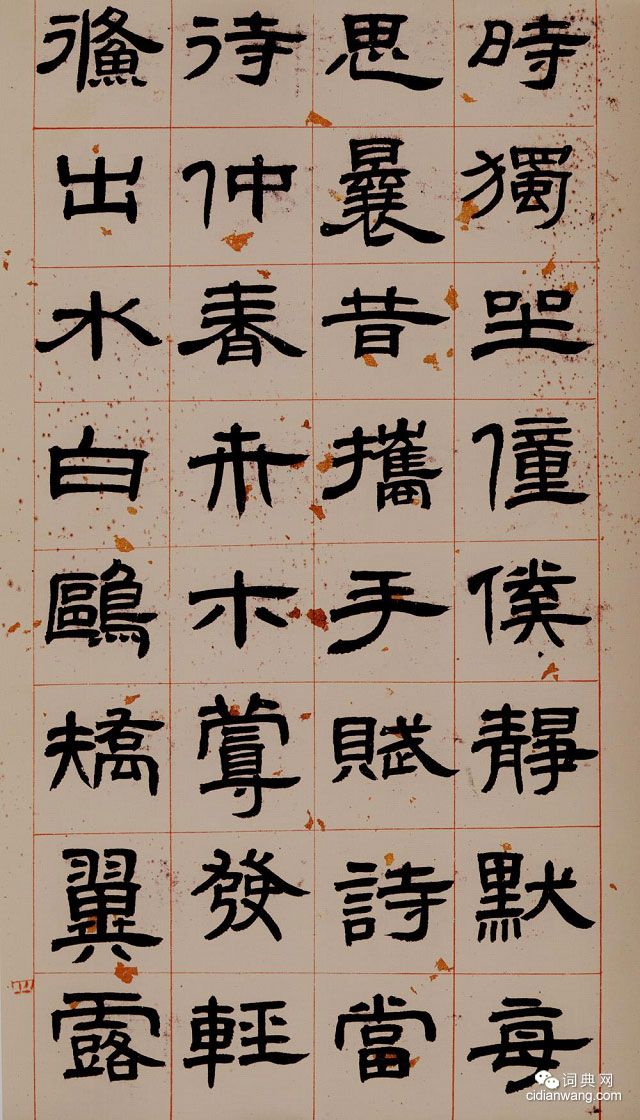 時獨坐僮僕靜默每
思曩昔攜手賦詩當
待仲春卉木蔓發輕
鯈出水白鷗矯翼露
词典网
cidianwang.com